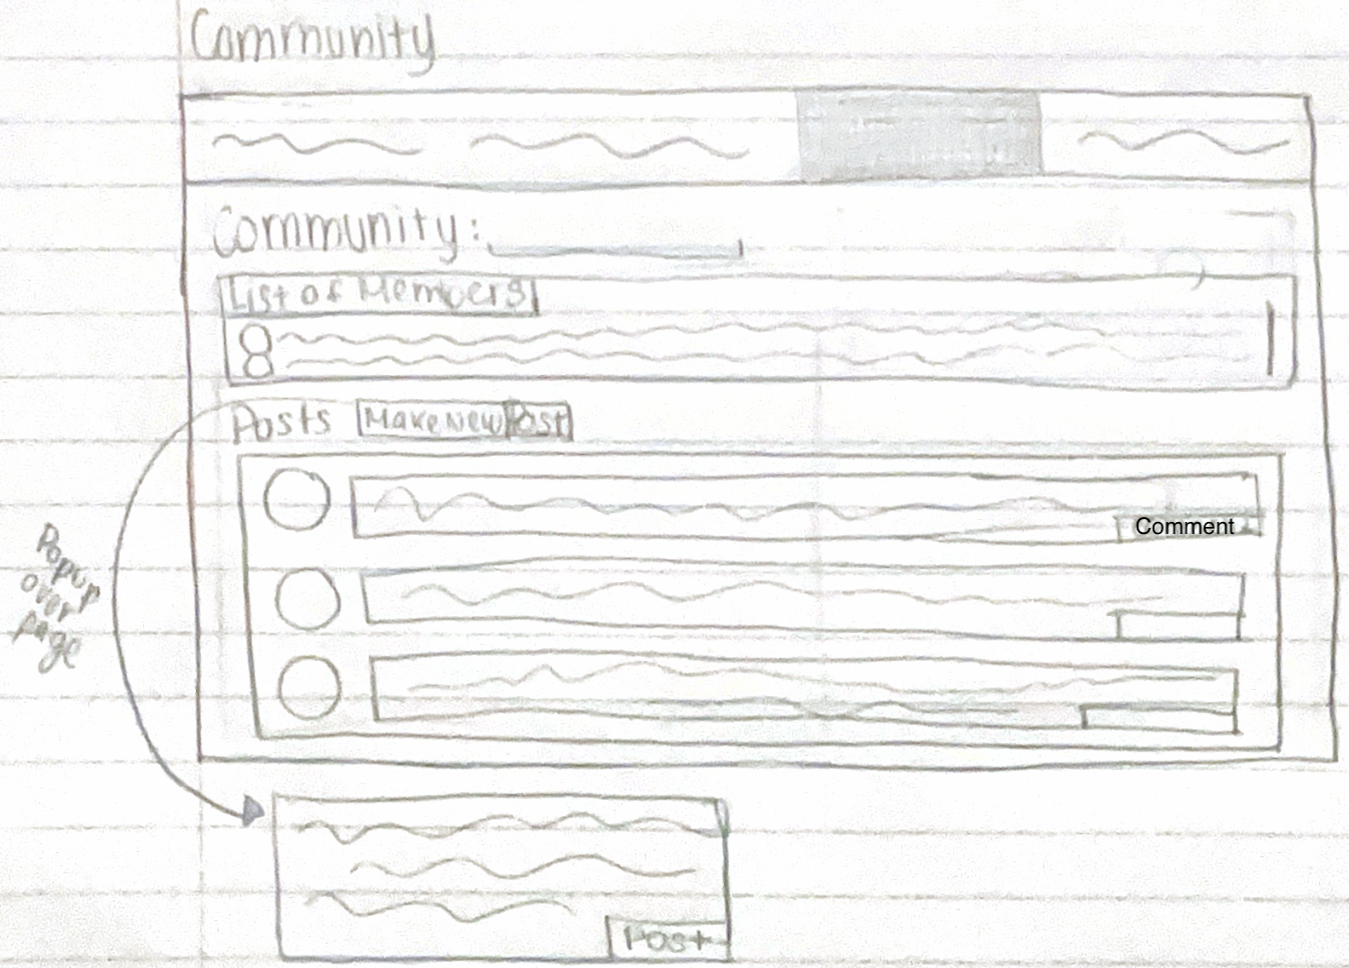 Community
Community:
List of Members
Posts Make New Post
Comment
Popup
over
page
Post